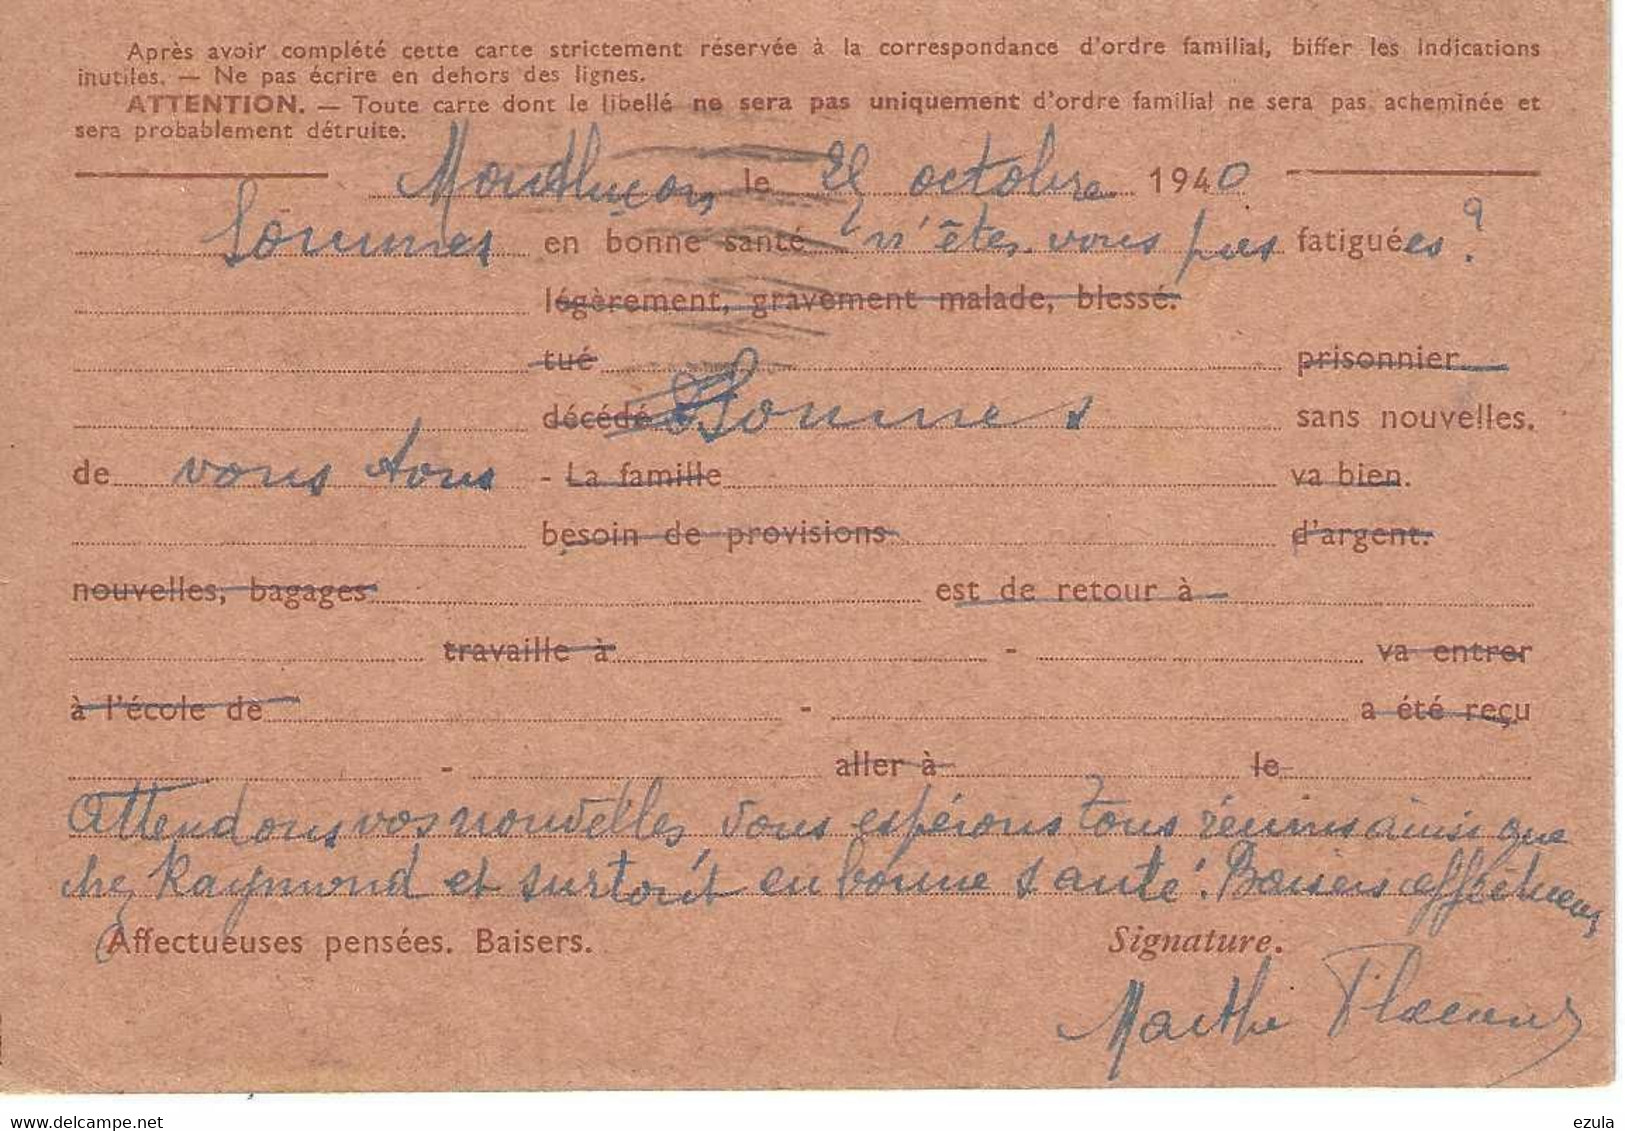 Après avoir complété cette carte strictement réservée à la correspondance d'ordre familial, biffer les indications
inutiles. — Ne pas écrire en dehors des lignes.
ATTENTION. — Toute carte dont le libellé ne sera pas uniquement d'ordre familial ne sera pas acheminée et
sera probablement détruite.
Montluçon, le octobre 1940
Sommes en bonne santé n'êtes vous pas fatiguées ?
légèrement, gravement malade, blessé.
tué prisonnier
décédé Sommes sans nouvelles.
de vous tous - La famille va bien.
besoin de provisions d'argent.
nouvelles, bagages est de retour à
travaille à - va entrer
à l'école de - a été reçu
- aller à le
Attendons vos nouvelles, vous espérons tous réunis ainsi que
chez Raymond et surtout en bonne santé. Baisers affectueux
Affectueuses pensées. Baisers. Signature.
Marthe
ezula
www.delcampe.net